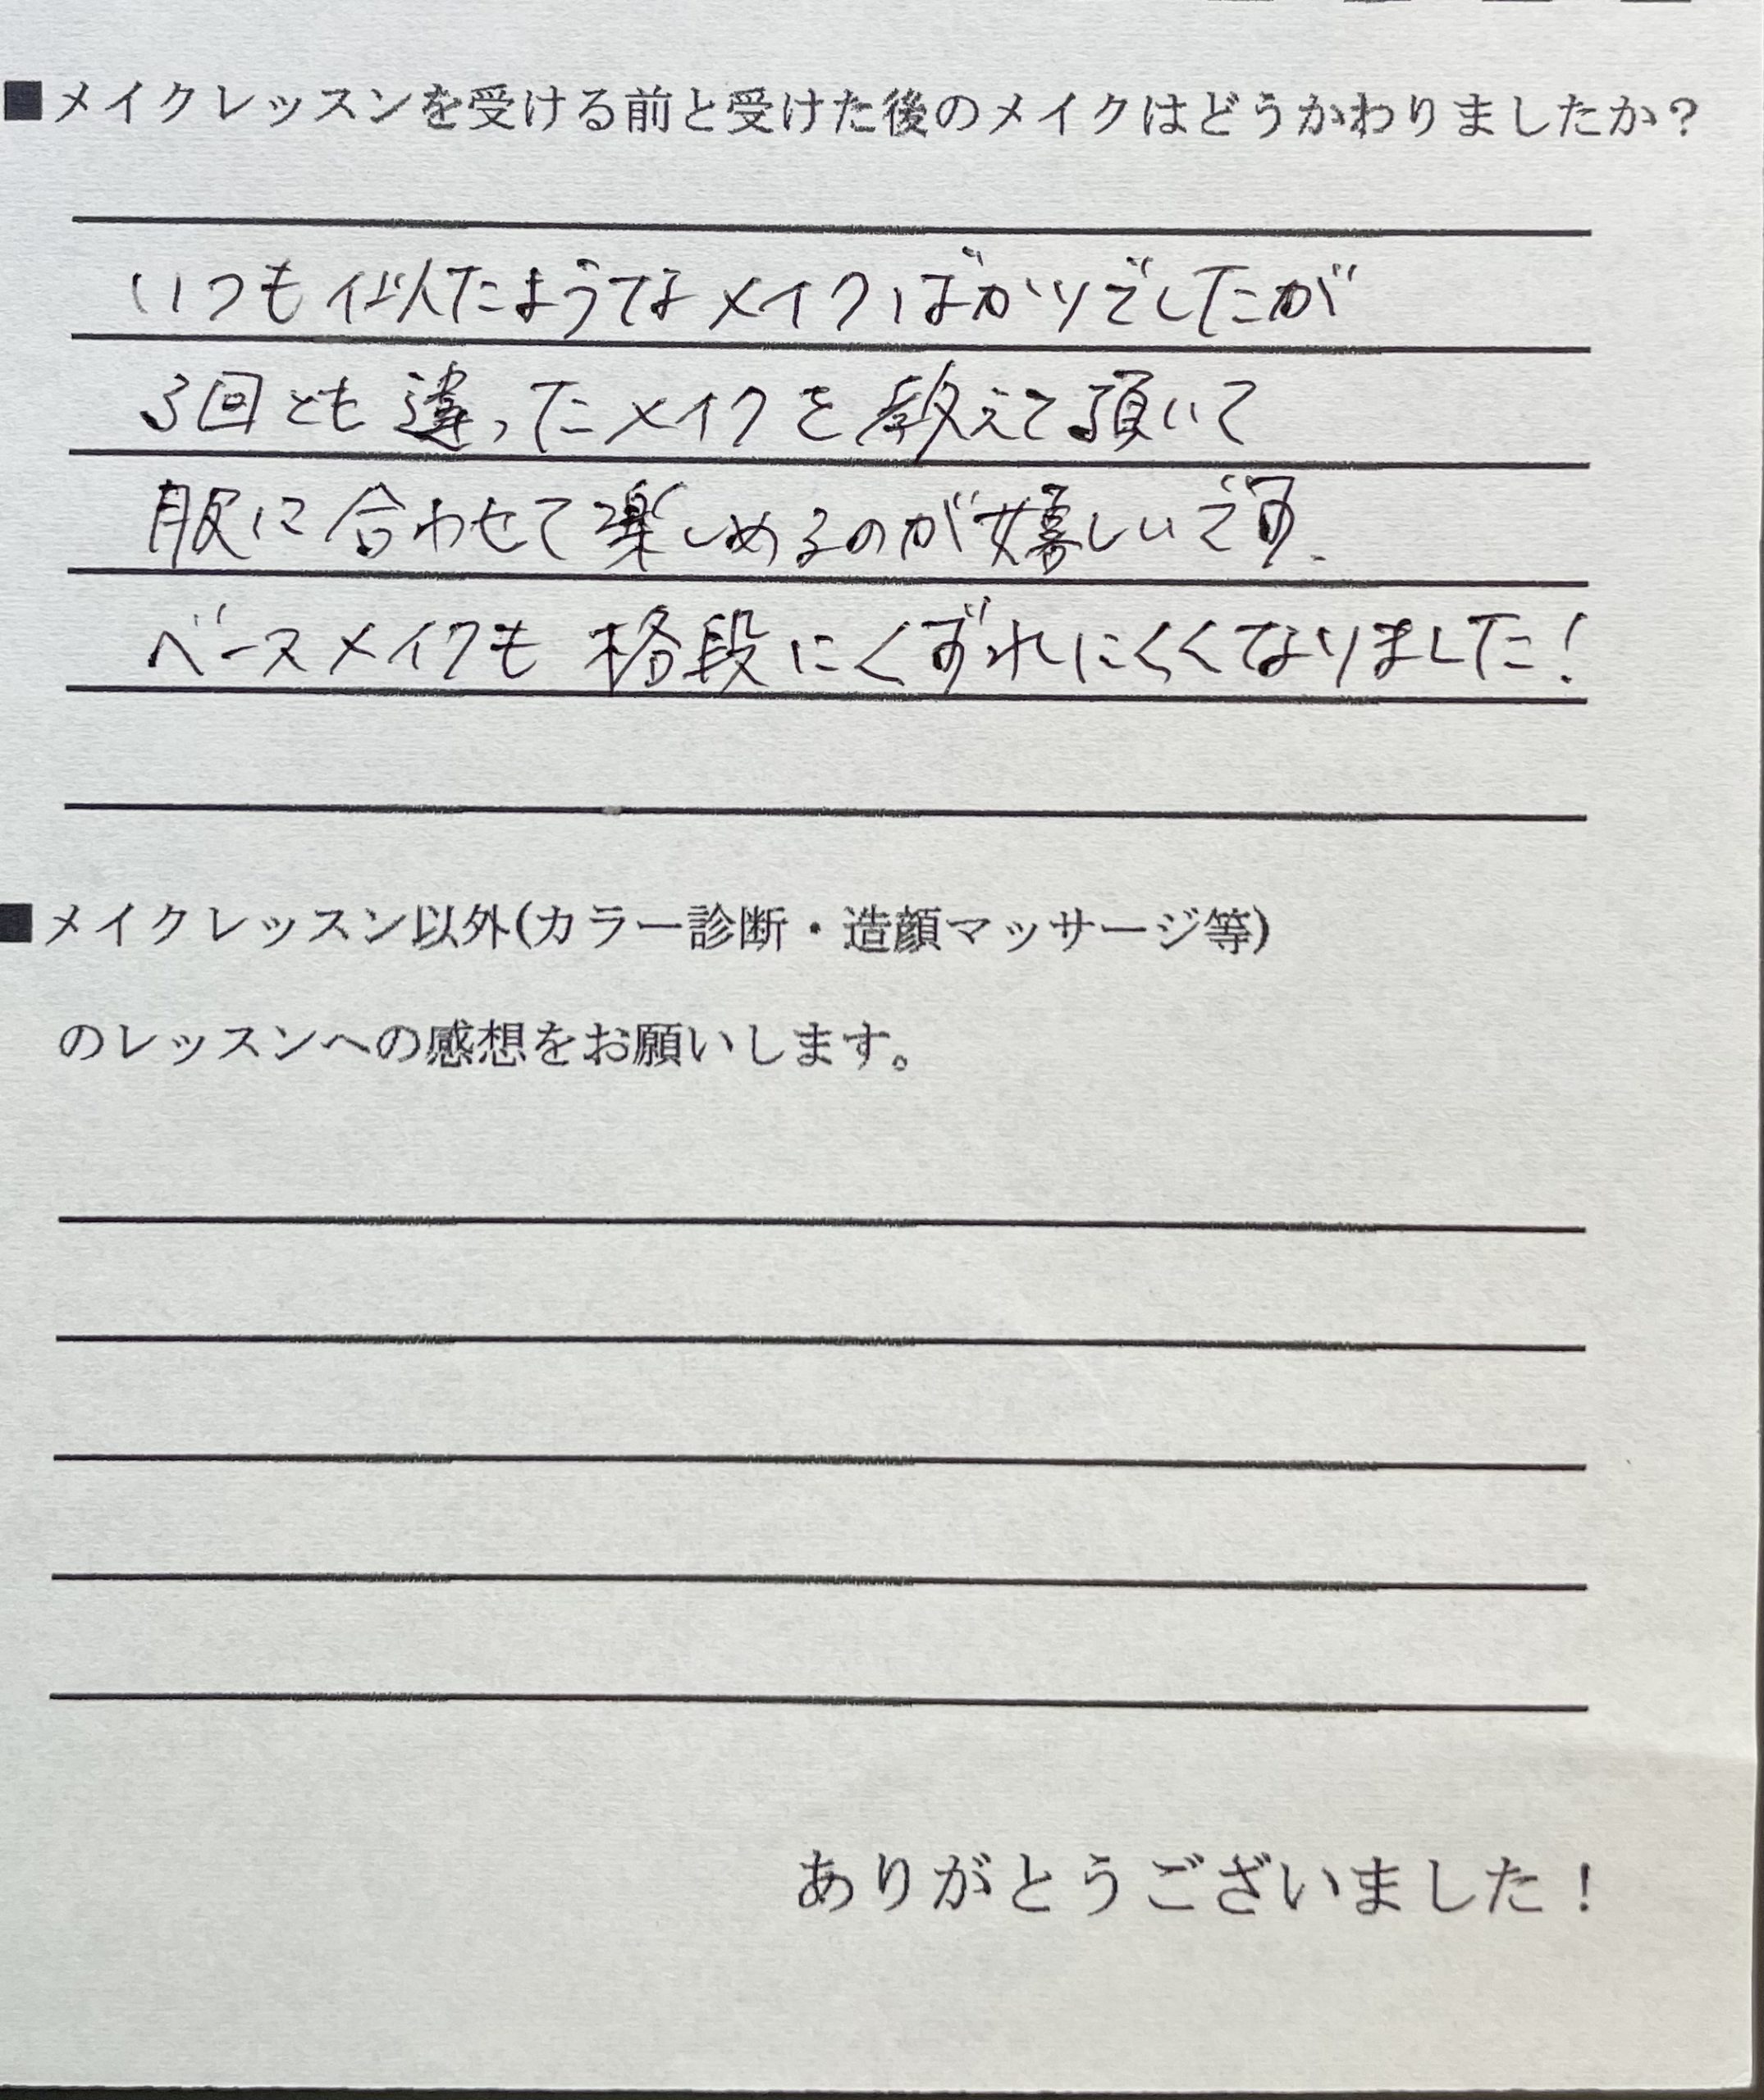 ■メイクレッスンを受ける前と受けた後のメイクはどうかわりましたか？
いつも似たようなメイクばかりでしたが
3回とも違ったメイクを教えて頂いて
服に合わせて楽しめるのが嬉しいです.
ベースメイクも格段にくずれにくくなりました!
■メイクレッスン以外(カラー診断・造顔マッサージ等)
のレッスンへの感想をお願いします。
ありがとうございました！